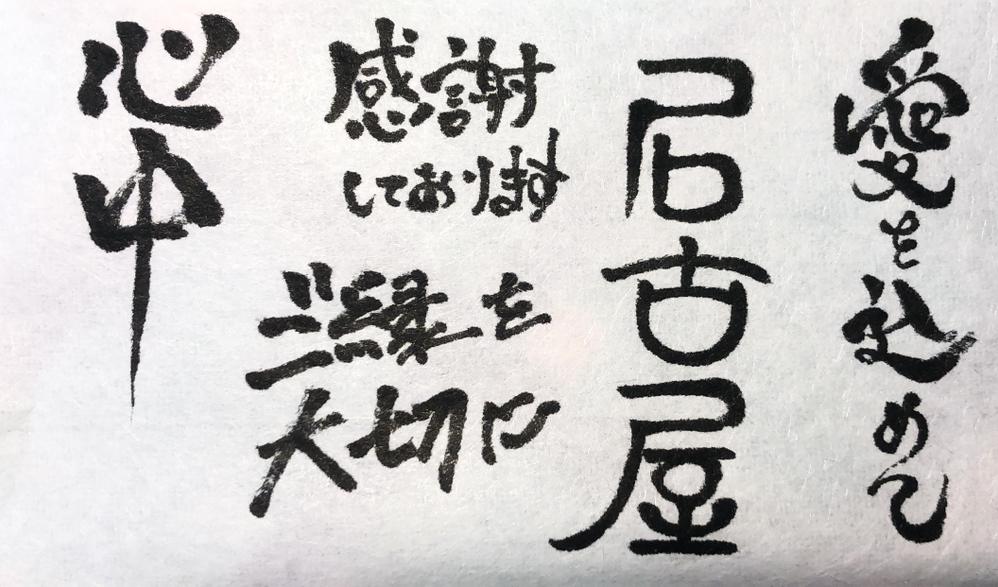 愛を込めて
名古屋
感謝
しております
ご縁を
大切に
心中